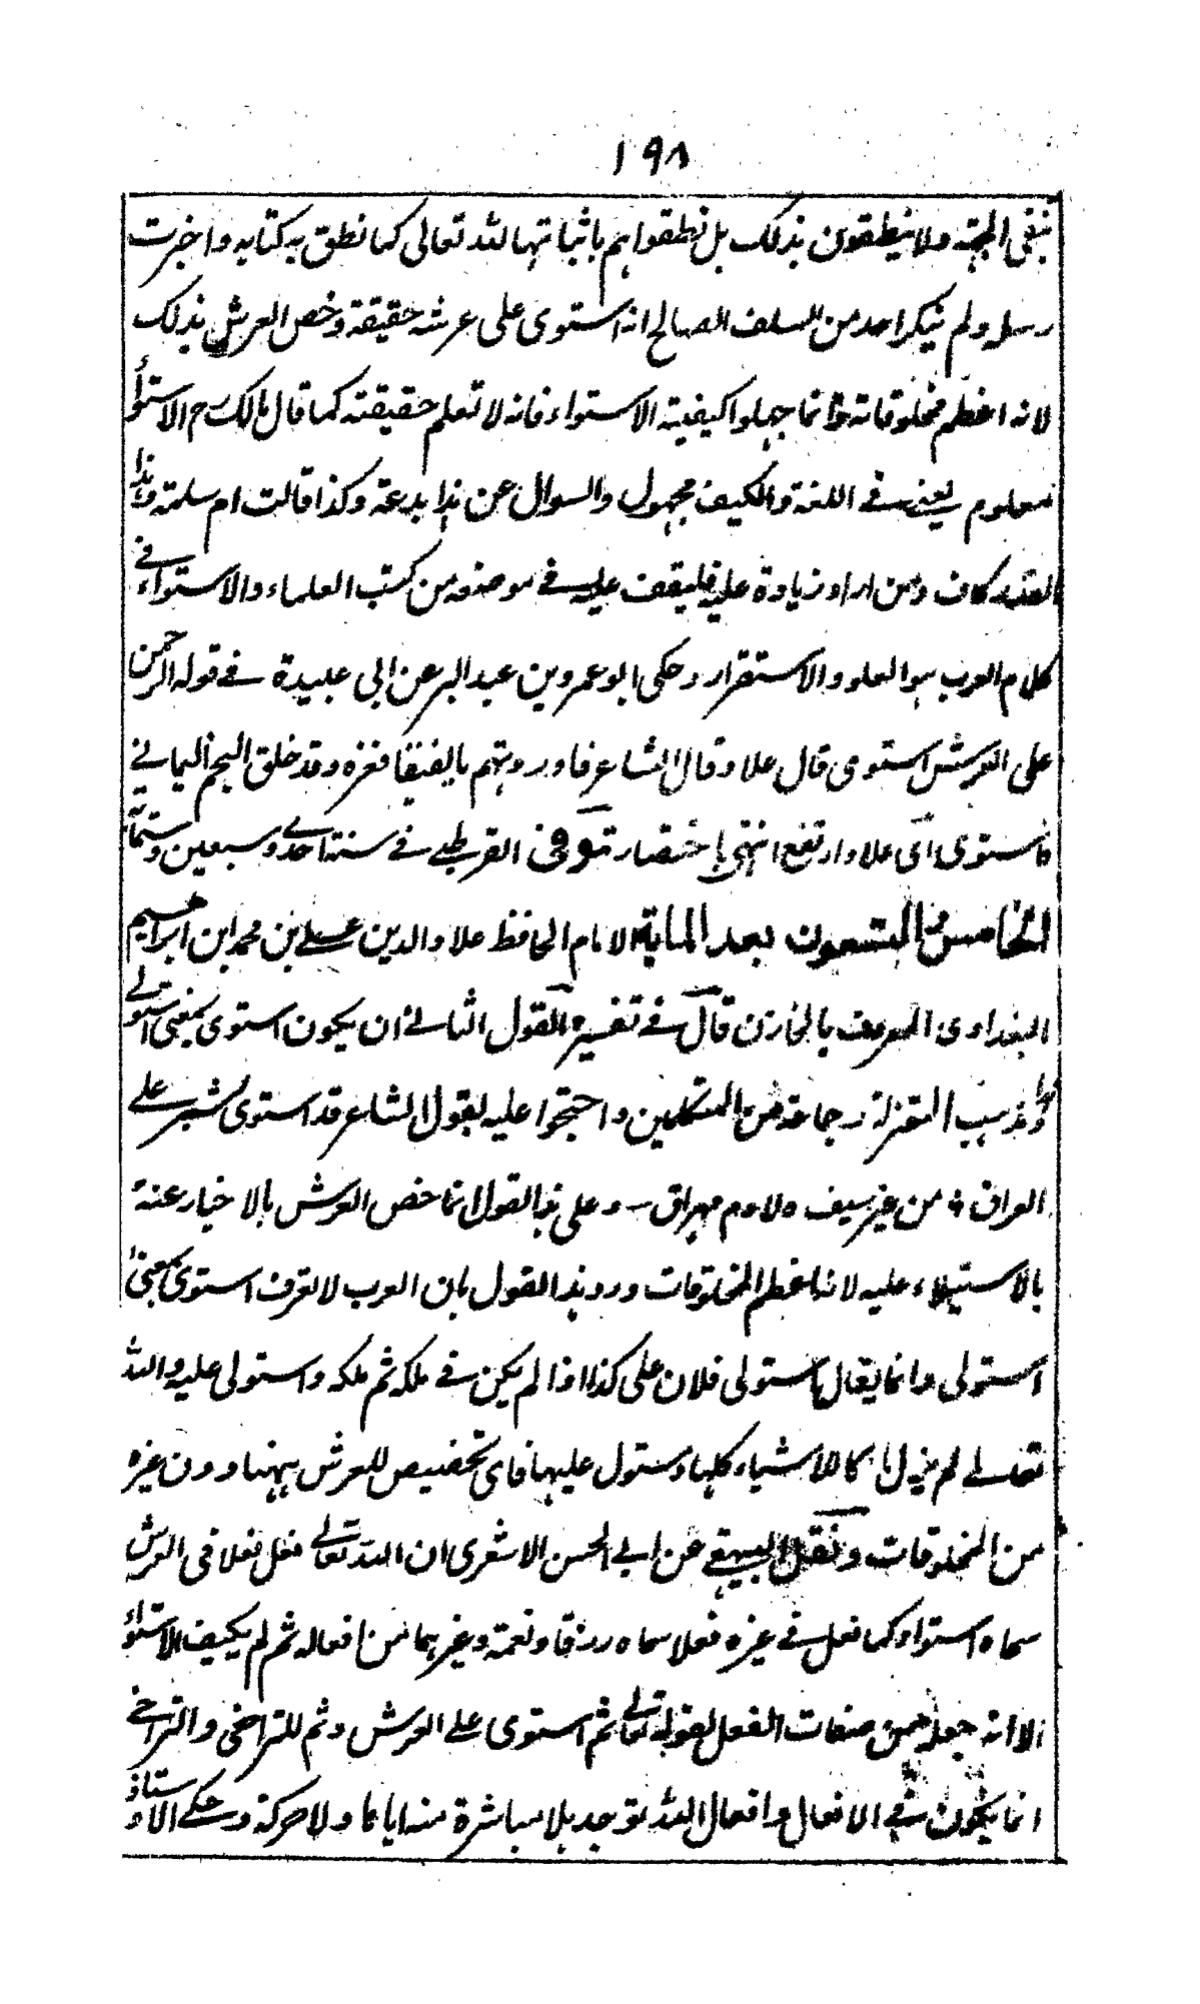 ١٩٨
بنفى الجهة ولا ينطقون بذلك بل نطقوا هم باثباتها لله تعالى كما نطق به كتابه واخبرت
رسله ولم ينكر احد من السلف الصالح انه استوى على عرشه حقيقة وخص العرش بذلك
لانه اعظم مخلوقاته وانما جهلوا كيفية الاستواء فانه لا تعلم حقيقته كما قال مالك رح الاستواء
معلوم يعنى فى اللغة والكيف مجهول والسوال عن هذا بدعة وكذا قالت ام سلمة وهذا
القدر كاف ومن اراد زيادة عليه فليقف عليه فى موضعه من كتب العلماء والاستواء فى
كلام العرب هو العلو والاستقرار وحكى ابو عمرو بن عبد البر عن ابى عبيدة فى قوله الرحمن
على العرش استوى قال علا وقال الشاعر فاوردتهم بالفيفا قفره وقد خلق النجم اليمانى
فاستوى اى علا وارتفع انتهى باختصار توفى القرطبى فى سنة احدى وسبعين وستمائة
الخامس والتسعون بعد الماية الامام الحافظ علاء الدين على بن محمد ابن ابراهيم
البغدادى المعروف بالخازن قال فى تفسيره القول الثانى ان يكون استوى بمعنى استولى
وهو مذهب المعتزلة وجماعة من المتكلمين واحتجوا عليه بقول الشاعر قد استوى بشر على
العراق ؛ من غير سيف ولا دم مهراق ـ وعلى هذا القول انما خص العرش بالاخبار عنه
بالاستيلاء عليه لانه اعظم المخلوقات ورد هذا القول بان العرب لا تعرف استوى بمعنى
استولى وانما يقال استولى فلان على كذا اذا لم يكن فى ملكه ثم ملكه واستولى عليه والله
تعالى لم يزل مالكا للاشياء كلها ومستول عليها فاى تخصيص للعرش ههنا دون غيره
من المخلوقات ونقل البيهقى عن ابى الحسن الاشعرى ان الله تعالى فعل فعلا فى العرش
سماه استواء كما فعل فى غيره فعلا سماه رزقا ونعمة وغيرهما من افعاله ثم لم يكيف الاستواء
الا انه جعله من صفات الفعل لقوله تعالى ثم استوى على العرش وثم للتراخى والتراخى
انما يكون فى الافعال وافعال الله توجد بلا مباشرة منه اياها ولا حركة وحكى الاستاذ